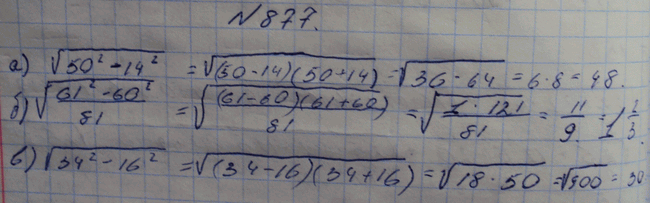 №877.
а) √(50² - 14²) = √((50-14)(50+14)) = √(36·64) = 6·8 = 48.
б) √((61² - 60²)/81) = √((61-60)(61+60)/81) = √(1·121/81) = 11/9 = 1 2/3
в) √(34² - 16²) = √((34-16)(34+16)) = √(18·50) = √900 = 30